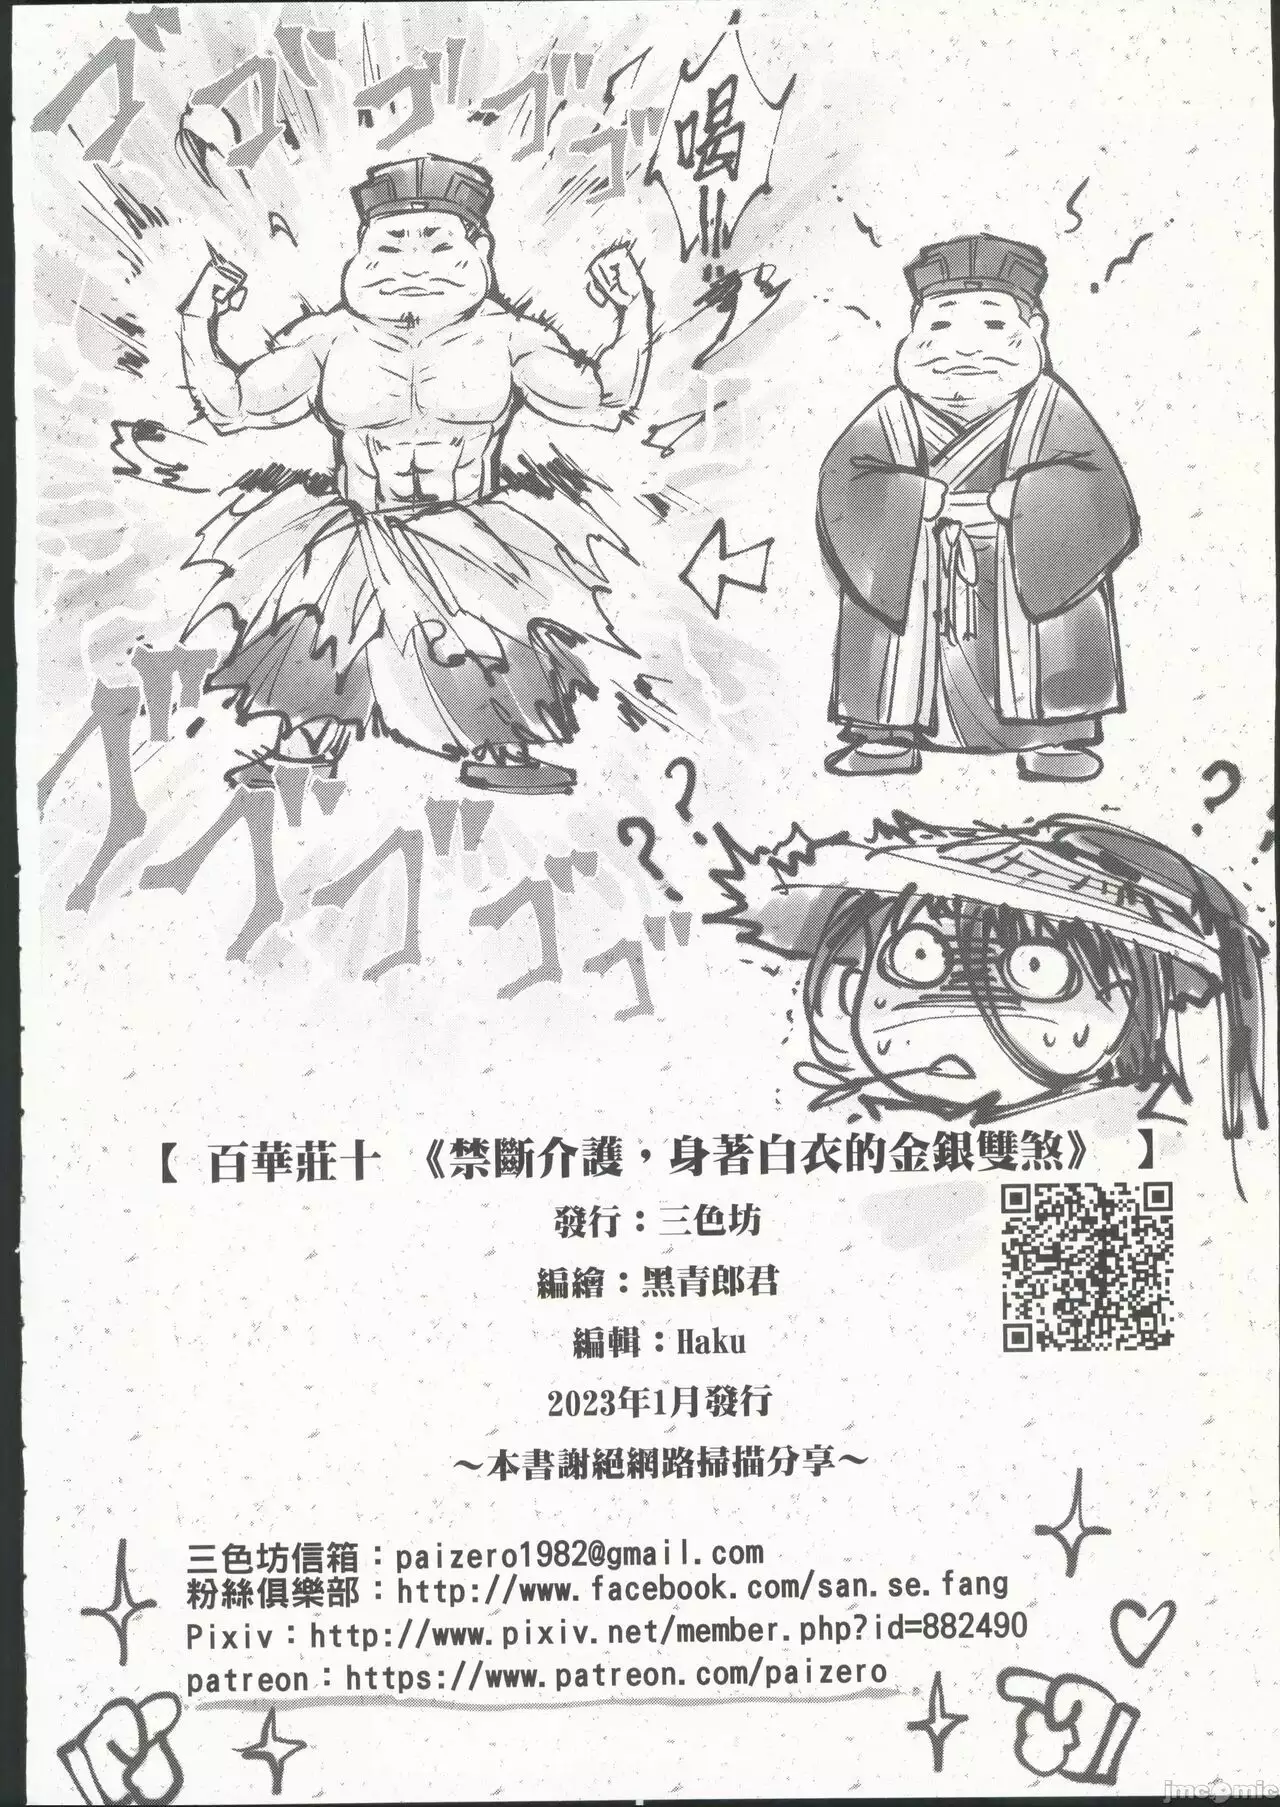 ゴゴゴゴゴゴ
喝!!
ゴゴゴゴゴゴ
? ? ?
【 百華莊十 《禁斷介護，身著白衣的金銀雙煞》 】
發行：三色坊
編繪：黑青郎君
編輯：Haku
2023年1月發行
～本書謝絕網路掃描分享～
三色坊信箱：paizero1982@gmail.com
粉絲俱樂部：http://www.facebook.com/san.se.fang
Pixiv：http://www.pixiv.net/member.php?id=882490
patreon：https://www.patreon.com/paizero
jmcomic